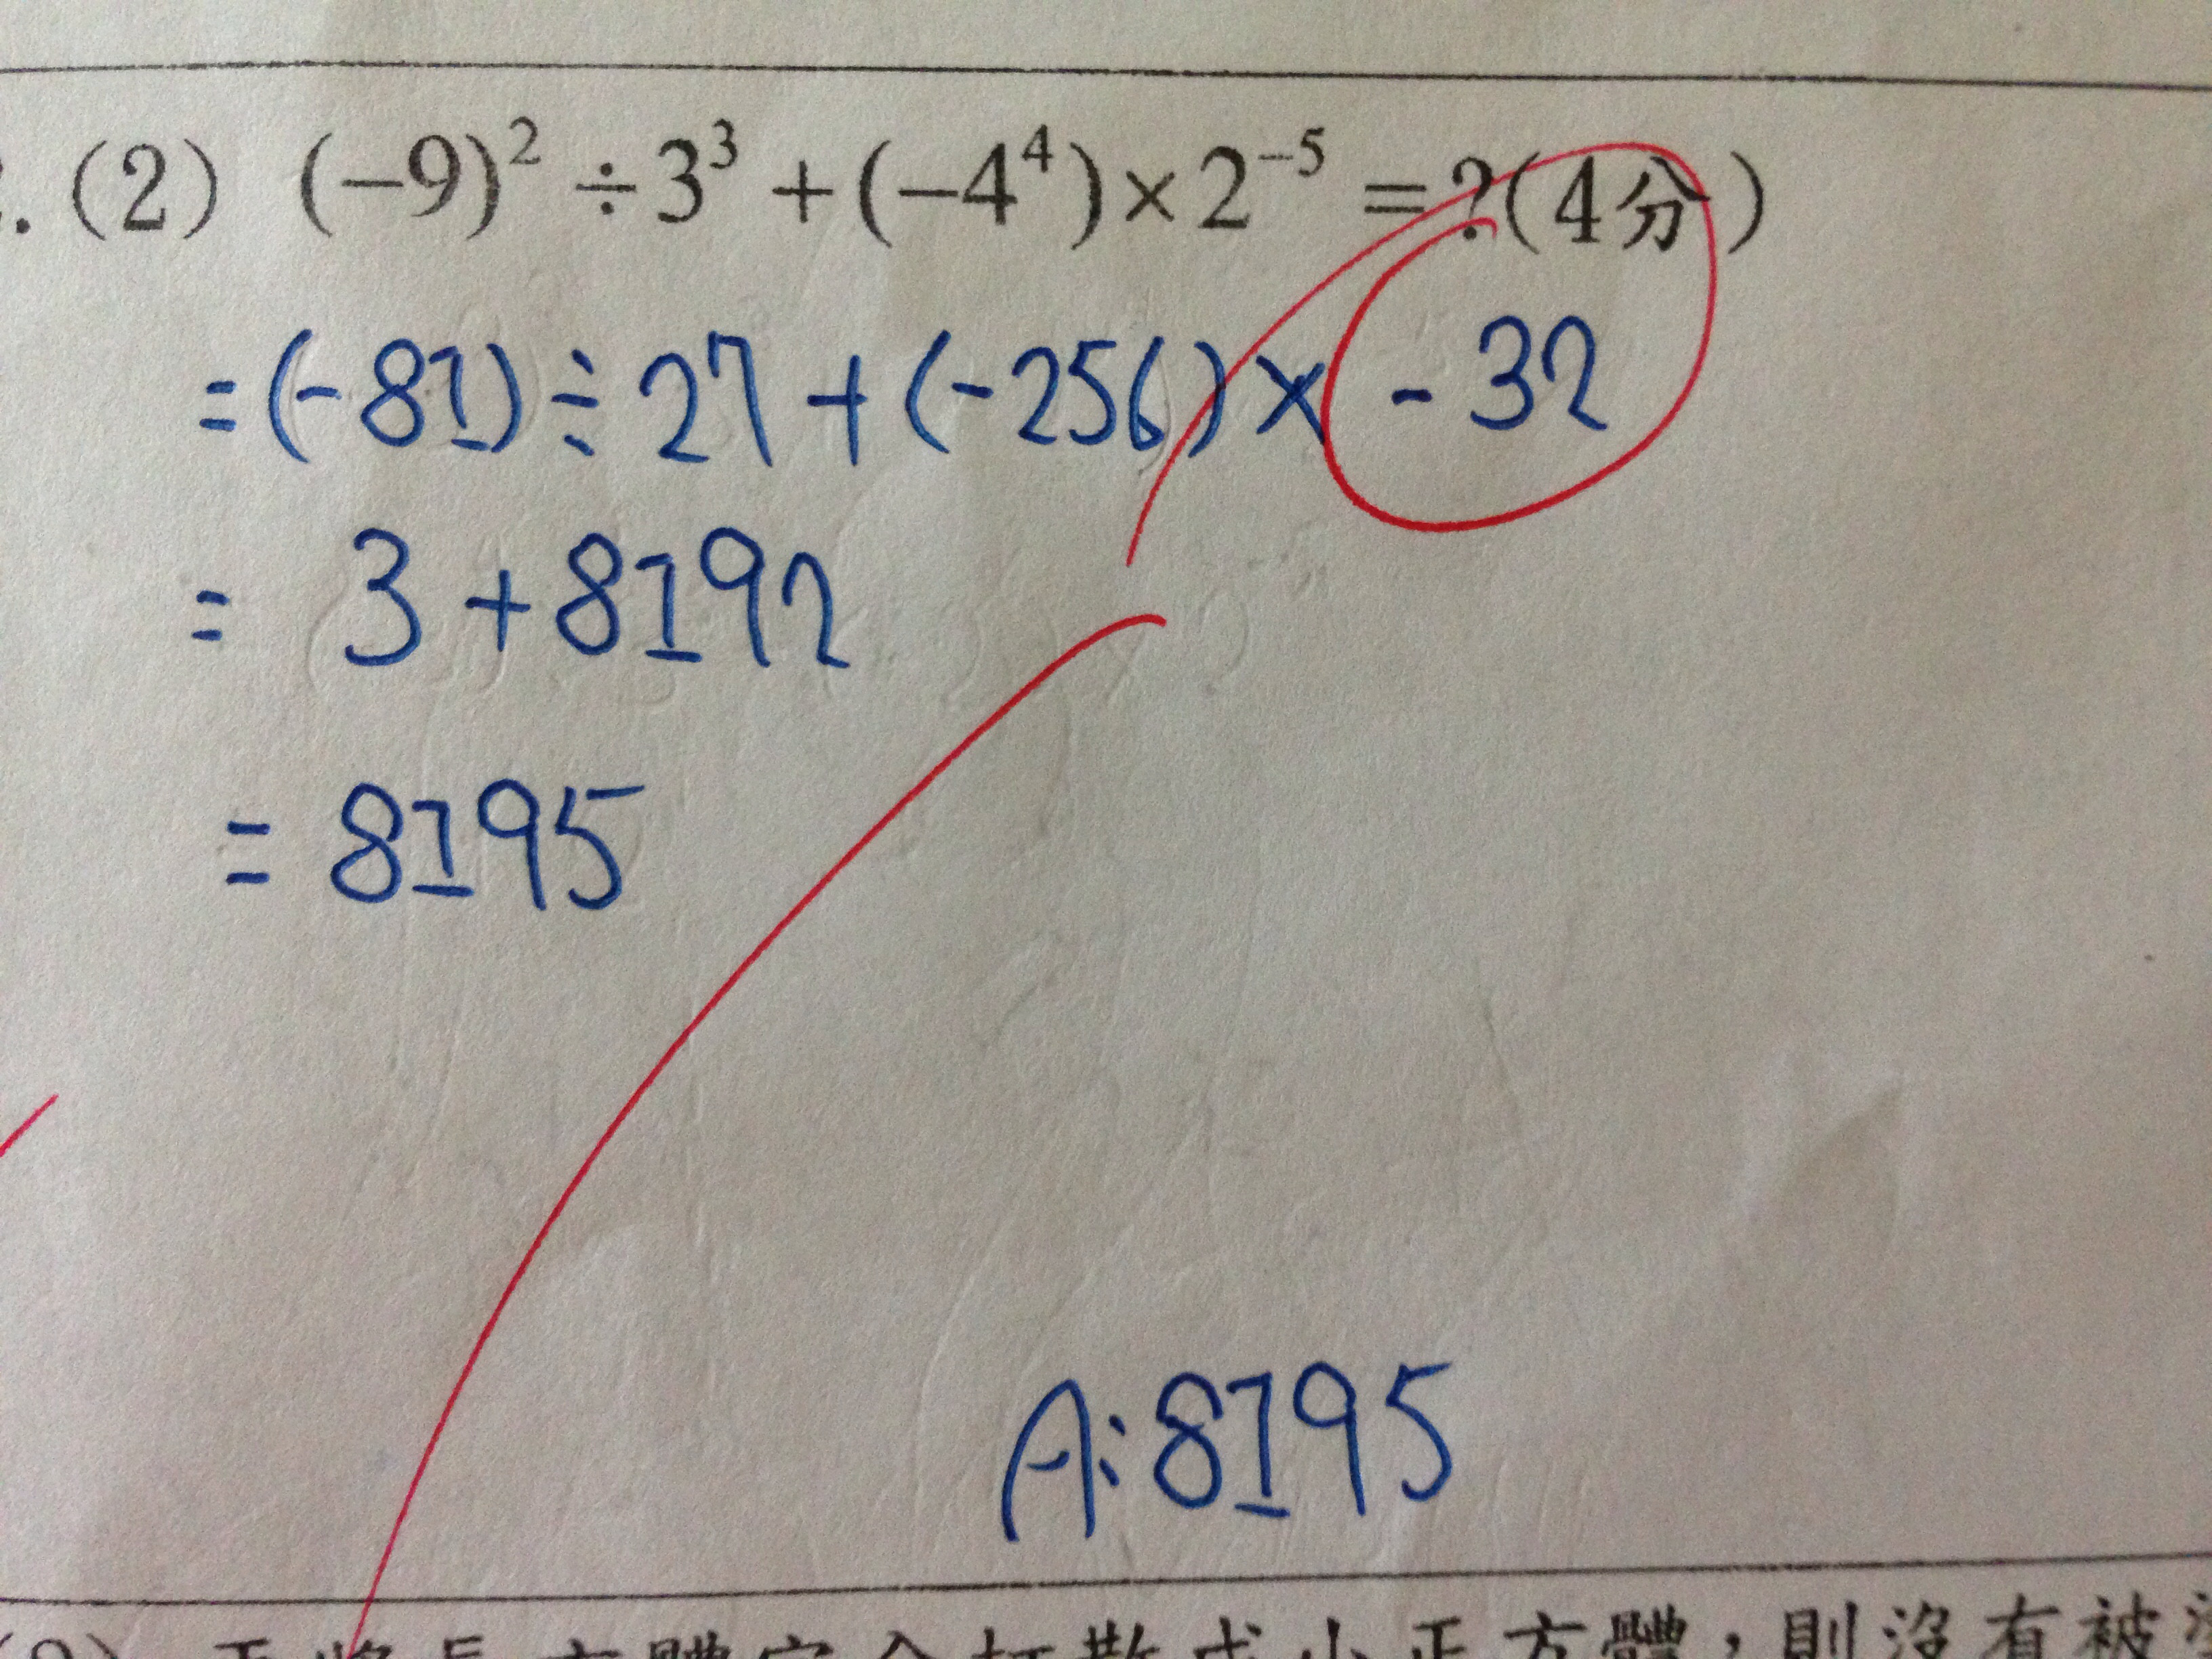 .(2) (−9)² ÷ 3³ + (−4⁴) × 2⁻⁵ = ?(4分)
= (-81) ÷ 27 + (-256) × - 32
= 3 + 8192
= 8195
A: 8195
體 成小正方體，則沒有被